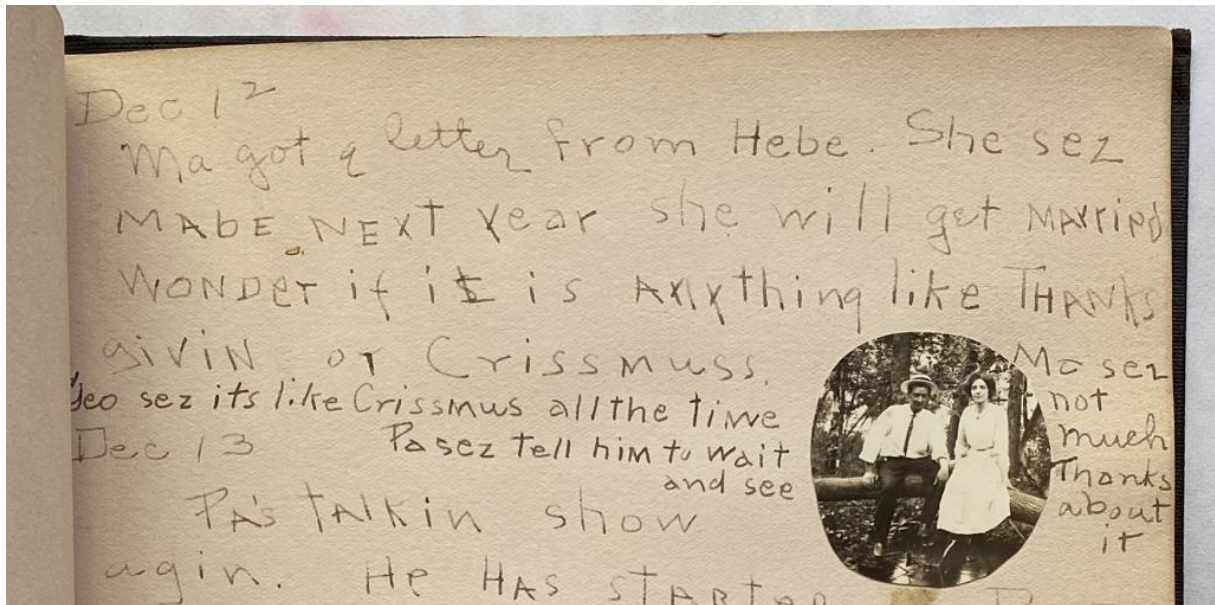 Dec 12
Ma got a letter from Hebe. She sez
MAbE NEXT year she will get MARRiED
WONDEr if it is ANYthing like THANKS
giviN or Crissmuss.
Geo sez its like Crissmus all the time
Pa sez tell him to wait
and see
Ma sez
not
much
Thanks
about
it
Dec 13
PA's TAlKin show
agin. He HAS STARTED